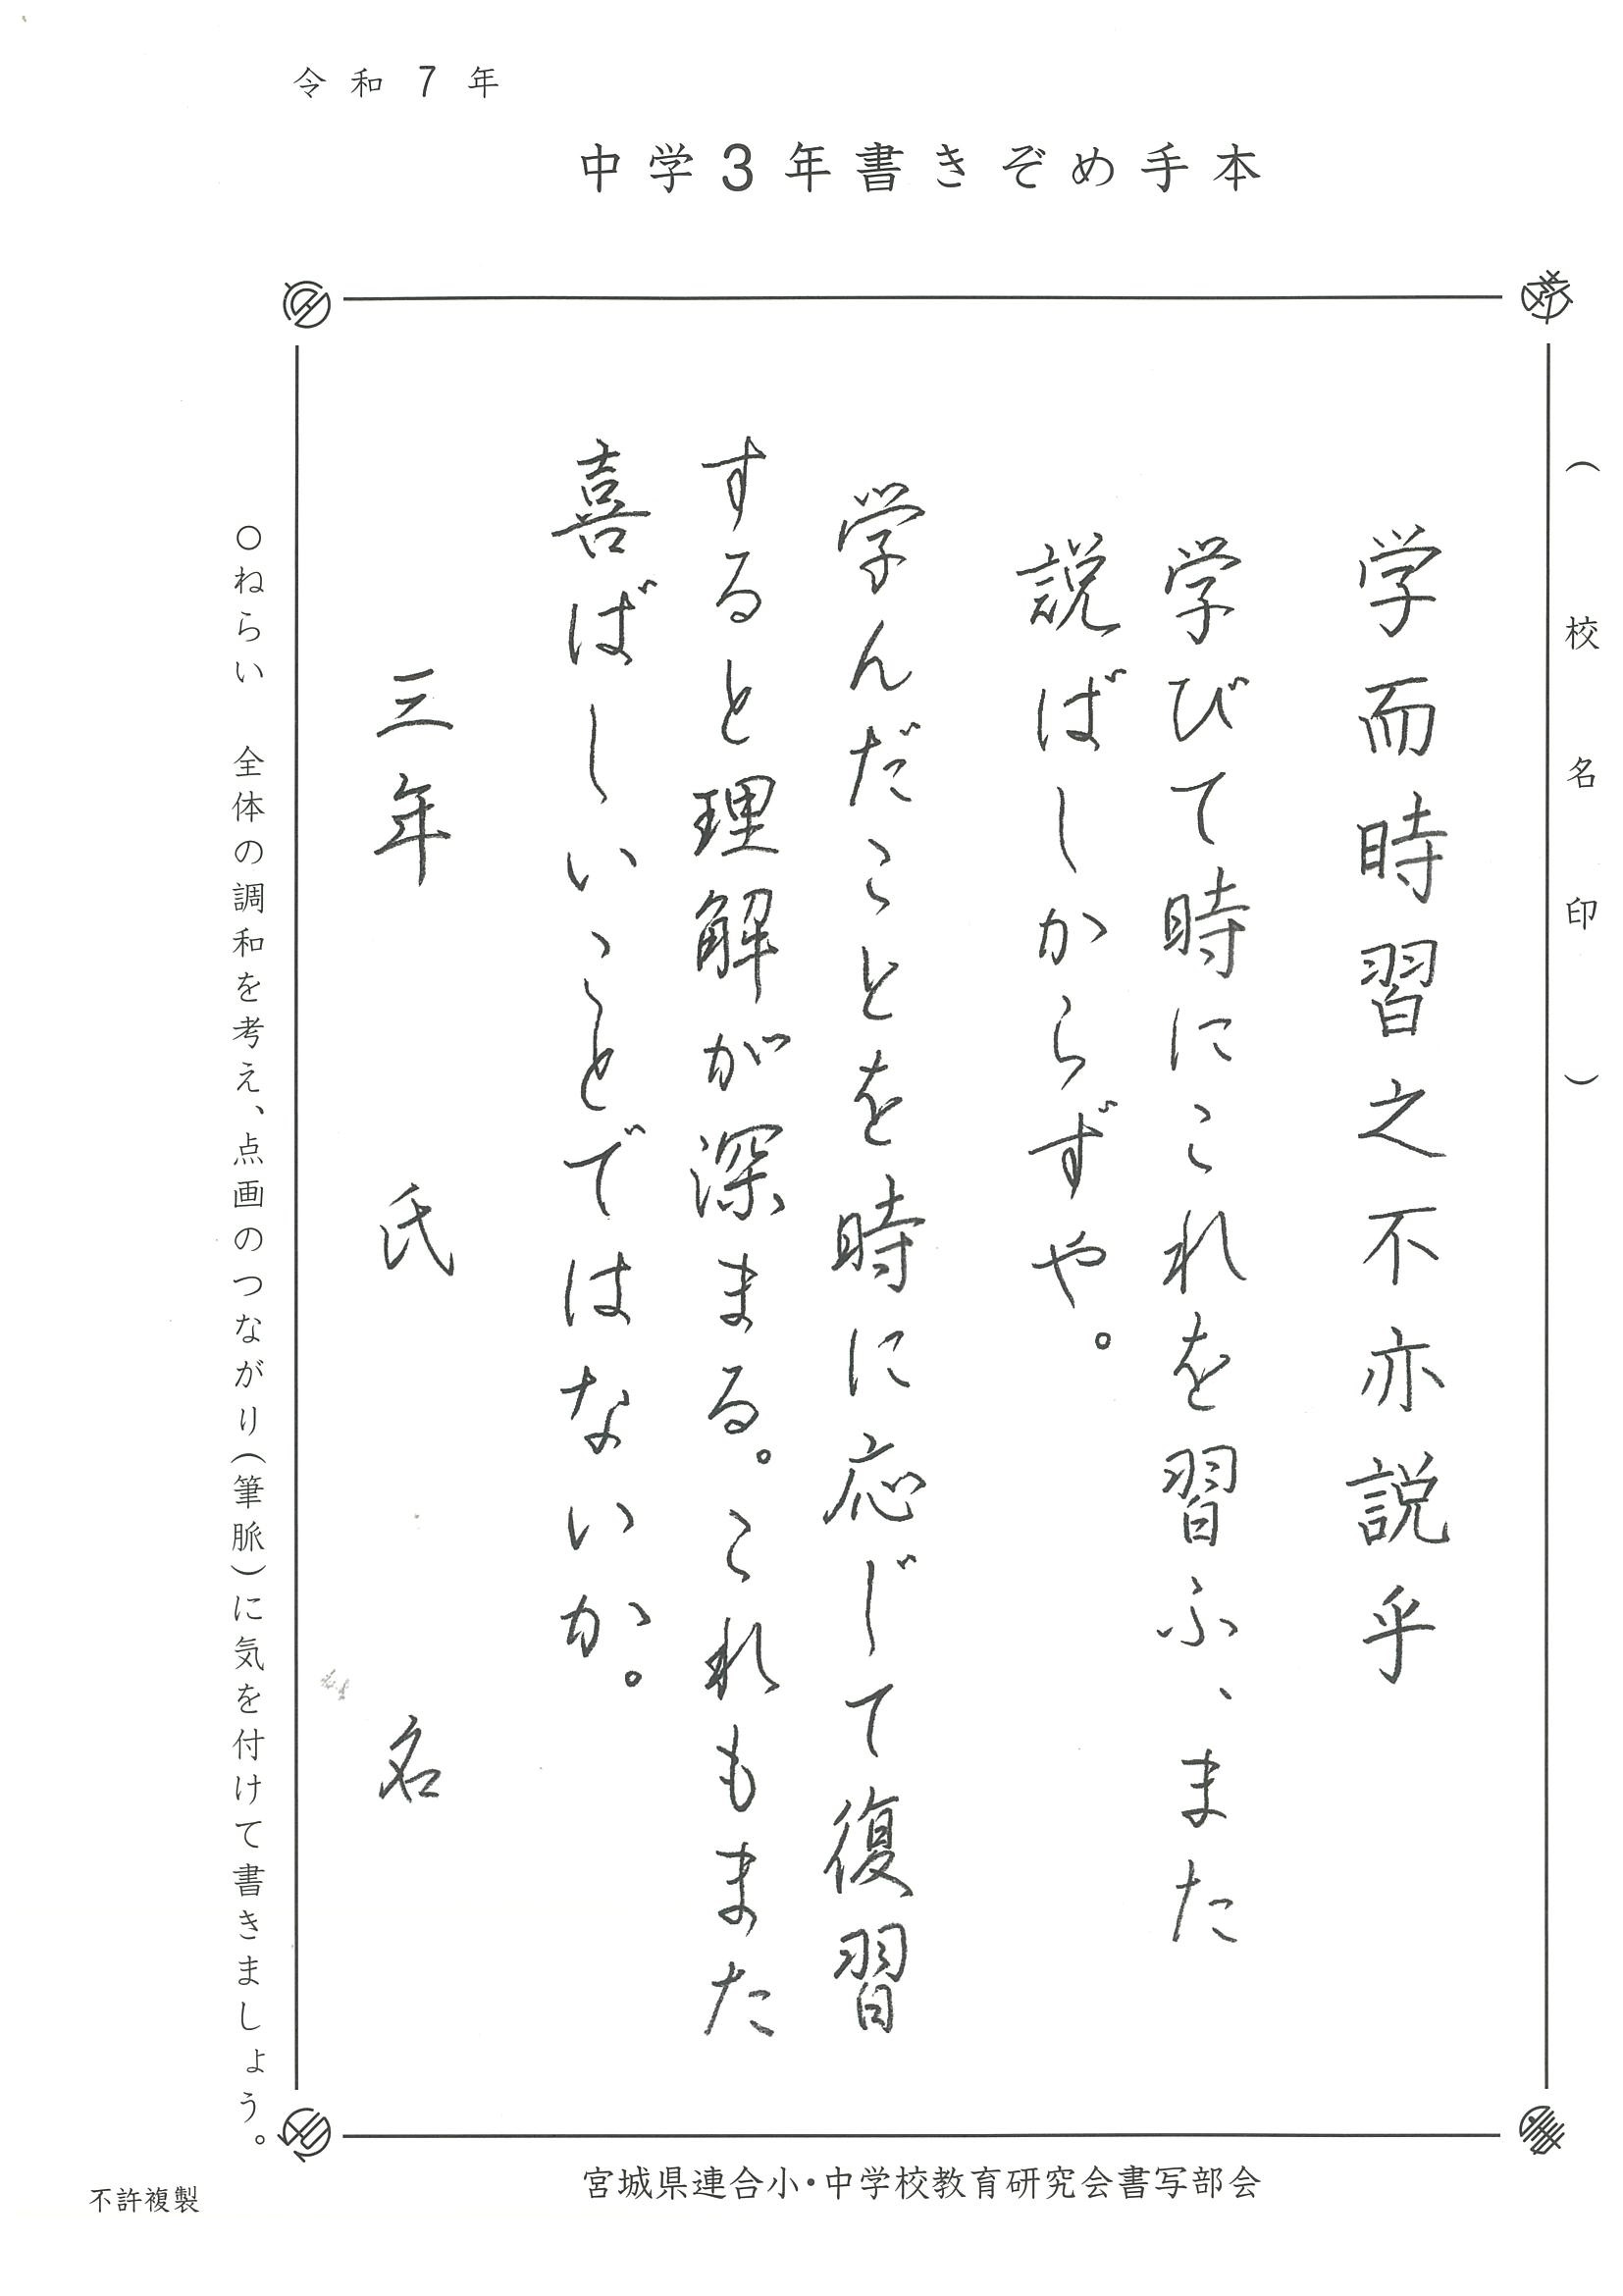 令和7年
中学3年書きぞめ手本
（校名印）
学而時習之不亦説乎
学びて時にこれを習ふ、また
説ばしからずや。
学んだことを時に応じて復習
すると理解が深まる。これもまた
喜ばしいことではないか。
三年 氏名
○ねらい 全体の調和を考え、点画のつながり（筆脈）に気を付けて書きましょう。
宮城県連合小・中学校教育研究会書写部会
不許複製